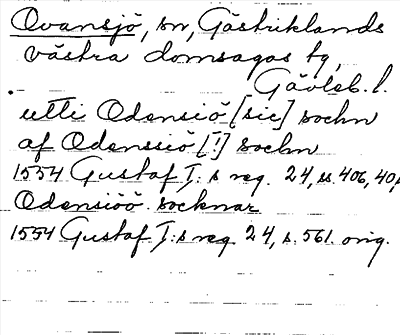 Ovansjö, sn, Gästriklands
västra domsagas tg,
Gävleb. l.
utti Odensiö [sic] sochn
af Odenssiö [!] sochn
1554 Gustaf I:s reg. 24, ss. 406, 40
Odensiöö socknar
1554 Gustaf I:s reg. 24, s. 561. orig.